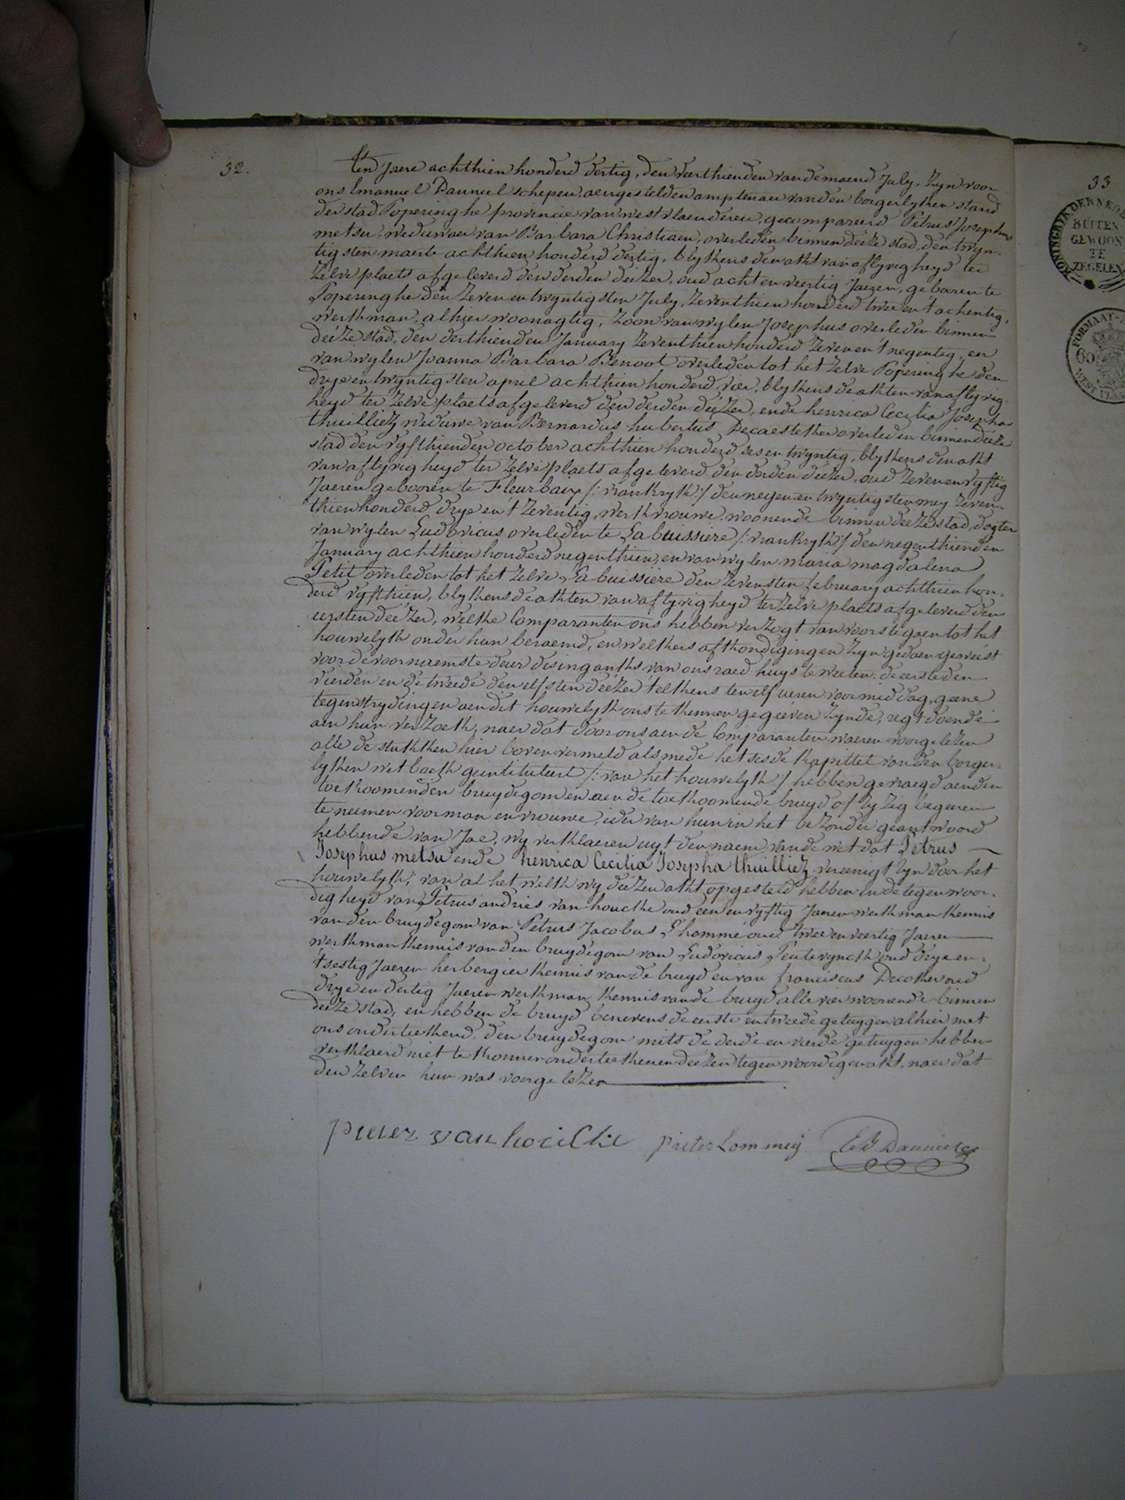 32.
ten Jaere achthien honderd dertig, den veerthienden van de maend July, Zyn voor
ons Emanuel Danneel schepen aengestelden amptenaer van den borgerlyken stand
der stad Poperinghe provincie van westvlaenderen, gecompareerd Petrus Josephus
metsu, weduwaer van Barbara Christiaen, overleden binnen deeze stad, den twyn-
tigsten maerte achthien honderd dertig, blykens den akt van aflyvigheyd ter
Zelve plaets afgeleverd den derden deezer, oud acht en veertig Jaeren, geboren te
Poperinghe den Zeven en twyntigsten July, Zeventhien honderd twee en t'achentig,
werkman, alhier woonagtig, Zoon van wylen Josephus overleden binnen
deeze stad, den derthienden January Zeventhien honderd Zeven en 't negentig, en
van wylen Joanna Barbara Benoot overleden tot het zelve Poperinghe den
drye en twyntigsten april achthien honderd vier, blykens de akten van aflyvig-
heyd ter Zelve plaets afgeleverd den derden deezer, ende henrica Cecilia Josepha
thuilliez weduwe van Bernardus hubertus Decaesteker overleden binnen deeze
stad den vyfthienden october achthien honderd ses en twyntig, blykens den akt
van aflyvigheyd ter Zelve plaets afgeleverd den derden deezer, oud Zeven en vyftig
Jaeren geboren te Fleurbaix /: vrankryk / den negen en twyntigsten mey Zeven-
thien honderd drye en 't Zeventig, werkvrouwe, woonende binnen deeze stad, dogter
van wylen Ludovicus overleden te Labuissiere /: vrankryk / den negenthienden
January achthien honderd negenthien, en van wylen maria magdalena
Petit overleden tot het zelve Labuissiere den Zevensten february achthien hon-
derd vyfthien, blykens de akten van aflyvigheyd ter Zelve plaets afgeleverd den
eersten deezer, welke Comparanten ons hebben verzogt van voorts te gaen tot het
houwelyk onder hun beraemd, en welkers afkondigingen Zyn gedaen geweest
voor de voornaemste deur des inganks van ons raedhuys te weeten, de eerste den
vierden en de tweede den elfsten deezer telkens ten elf ueren voormiddag, geene
tegenstrydingen aen dit houwelyk ons te kennen gegeeven Zynde, regt doende
aen hun verzoek, naer dat door ons aen de Comparanten waeren voorgelezen
alle de stukken hier boven vermeld als mede het sesde kapittel van den borger-
lyken wetboek geintituleerd /: van het houwelyk / hebben gevraegd aen den
toekoomenden bruydegom en aen de toekoomende bruyd of Zy Zig begeeren
te neemen voor man en vrouwe, ider van hun in het bezonder geantwoord
hebbende van Jae, wy verklaeren uyt den naem van de wet dat Petrus
Josephus metsu ende henrica Cecilia Josepha thuilliez vereenigt Zyn door het
houwelyk, van al het welk wy deezen akt opgesteld hebben in de tegenwoor-
digheyd van Petrus andries van houcke oud een en vyftig Jaeren werkman kennis
van den bruydegom van Petrus Jacobus Lhommé oud twee en veertig Jaeren
werkman kennis van den bruydegom van Ludovicus oud drye en
't sestig Jaeren herbergier kennis van de bruyd en van franciscus oud
drye en dertig Jaeren werkman, kennis van de bruyd alle vier woonende binnen
deeze stad, en hebben de bruyd benevens de eerste en tweede getuygen alhier met
ons onderteekend, den bruydegom mits de derde en vierde getuygen hebben
verklaerd niet te konnen onderteekenen deezen tegenwoordigen akt, naer dat
den Zelven hun was voorgelezen
pieter van houcke pieter Lommeij Danneel
33
KONINGRYK DER NEDE
BUITEN
GEWOON
TE
ZEGELEN
FORMAAT